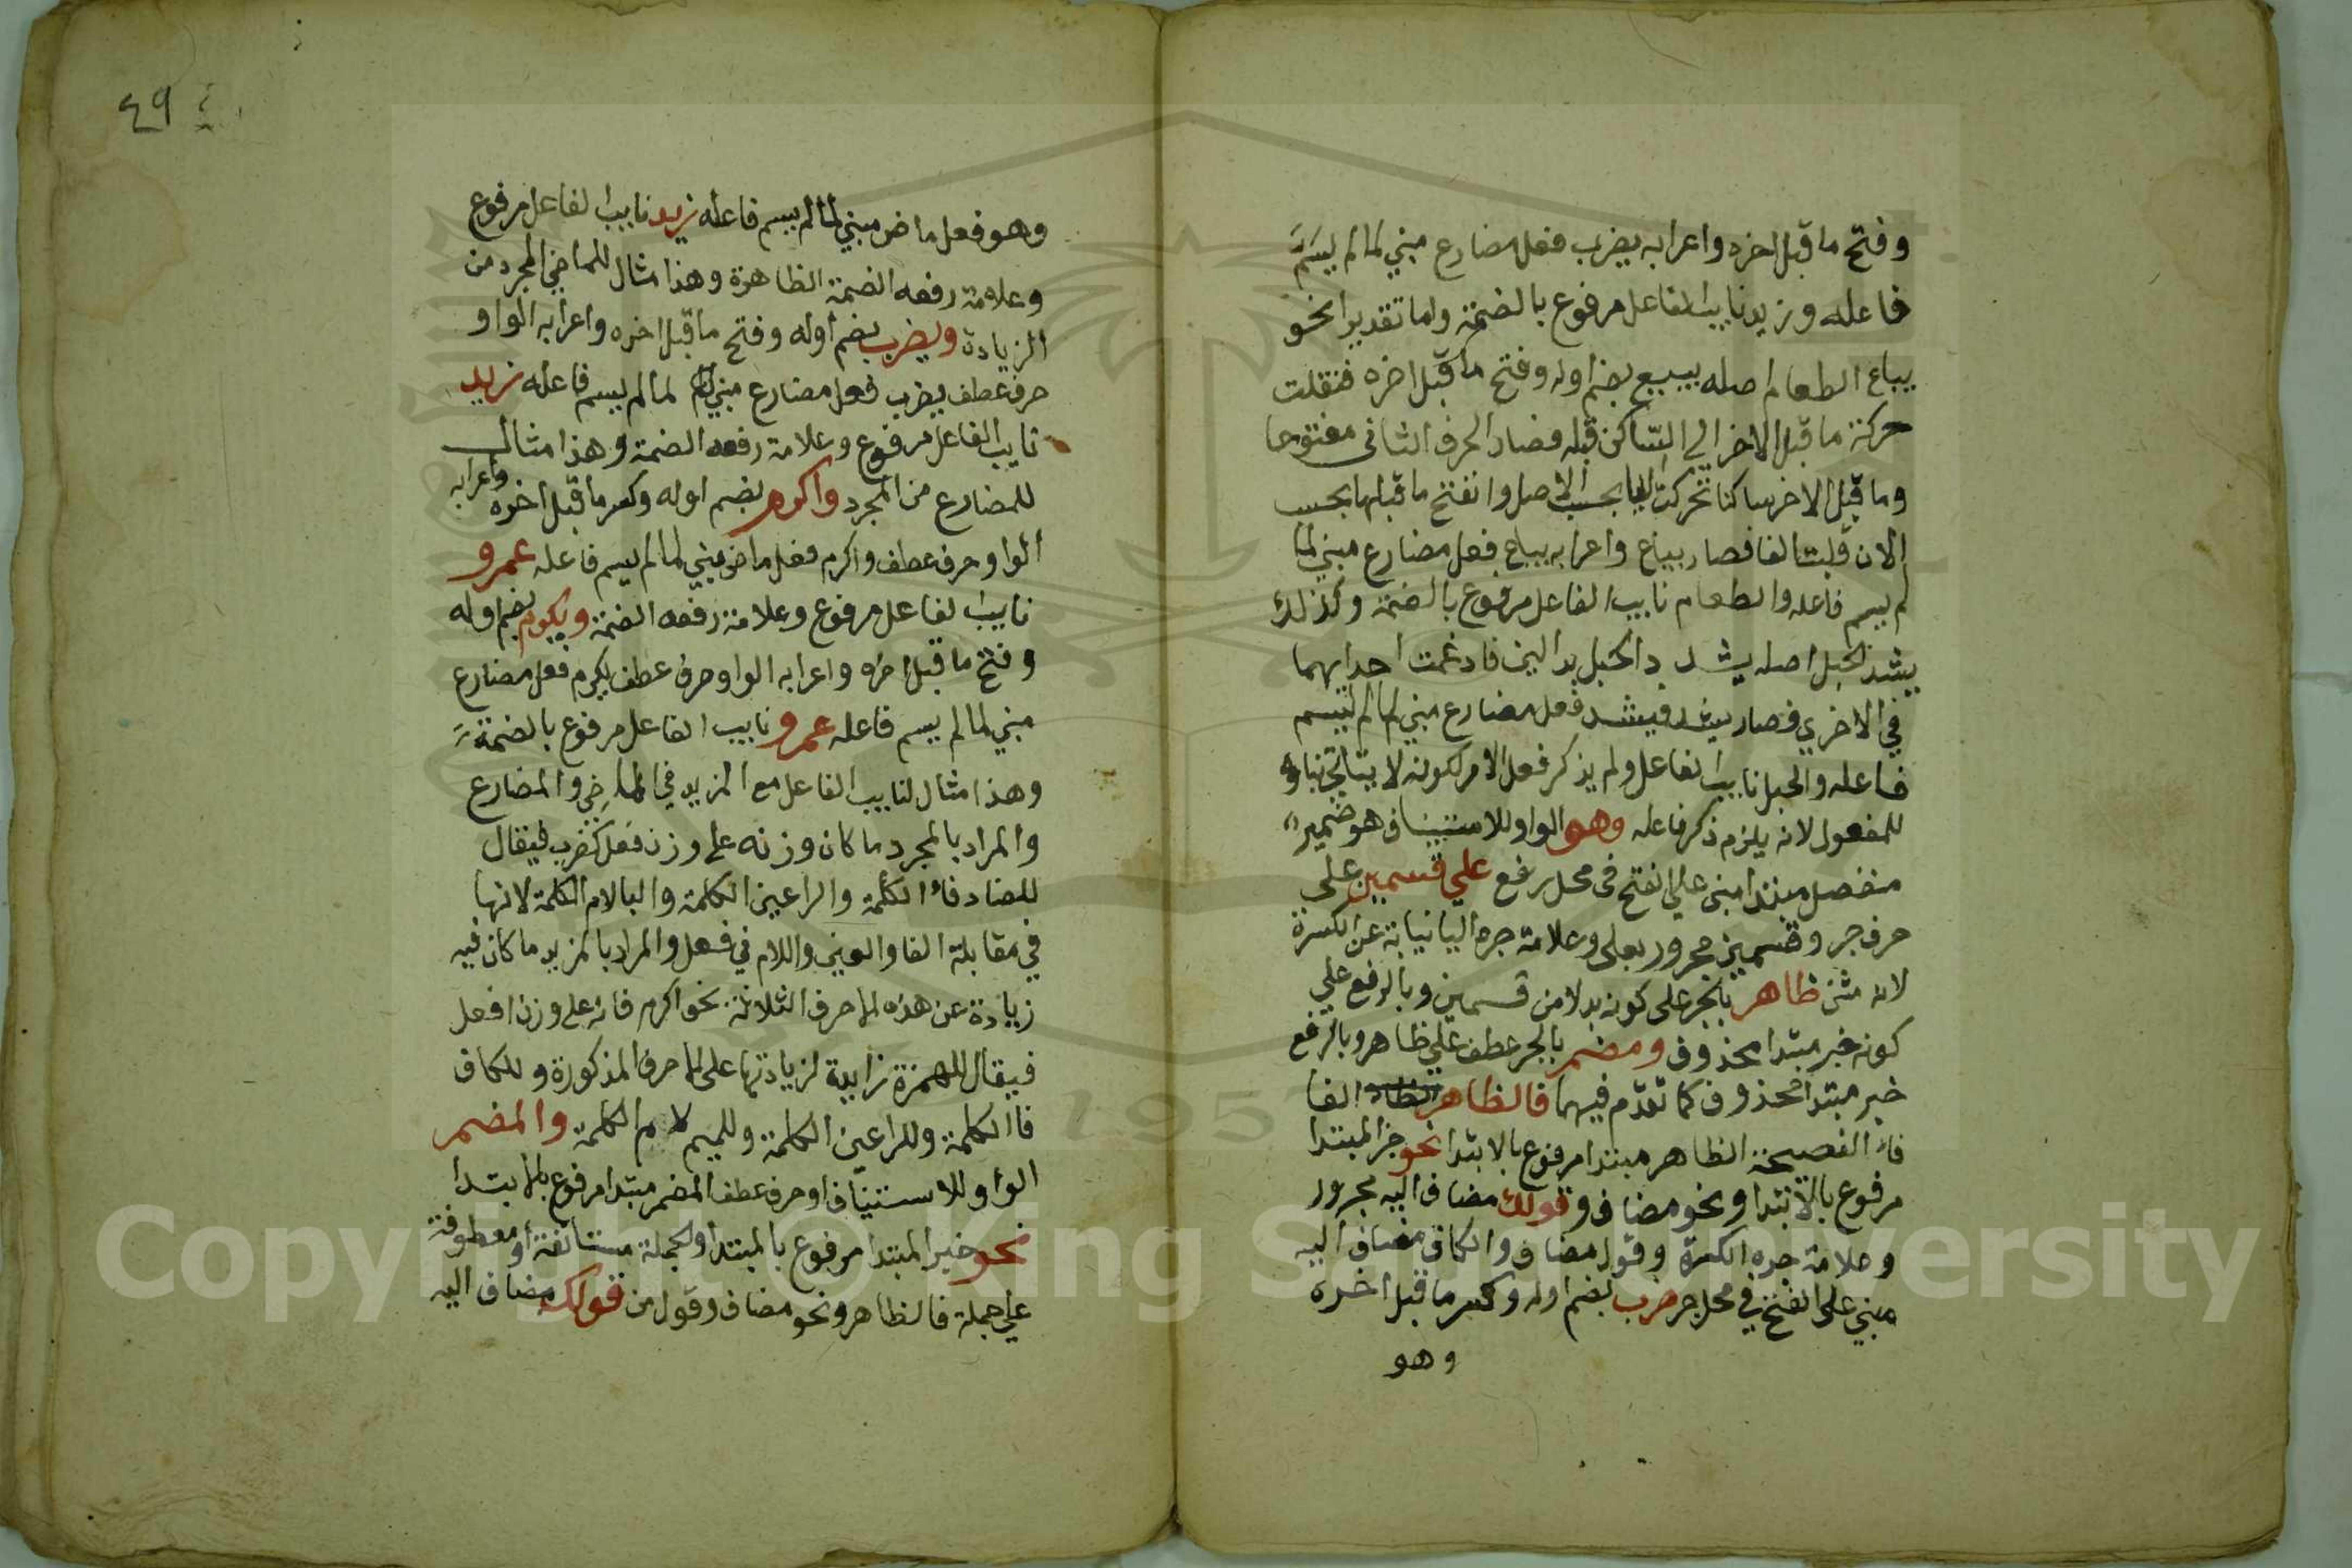 وفتح ما قبل اخره واعرابه يضرب فعل مضارع مبني لما لم يسم
فاعله وزيد نايب الفاعل مرفوع بالضمة واما تقديرا نحو
يباع الطعام اصله يبيع بضم اوله وفتح ما قبل اخره فنقلت
حركة ما قبل الاخر الي الساكن قبله فصار الحرف الثاني مفتوحا
وما قبل الاخر ساكنا تحركت اليا بحسب الاصل وانفتح ما قبلها بحسب
الان قلبت الفا فصار يباع واعرابه يباع فعل مضارع مبني لما
لم يسم فاعله والطعام نايب الفاعل مرفوع بالضمة وكذلك
يشد الحبل اصله يشدد الحبل بدالين فادغمت احداهما
في الاخري فصار يشد فيشد فعل مضارع مبني لما لم يسم
فاعله والحبل نايب الفاعل ولم يذكر فعل الامر لكونه لا يتاتي بناوه
للمفعول لانه يلزم ذكر فاعله وهو الواو للاستيناف هو ضمير
منفصل مبتدا مبني علي الفتح في محل رفع علي قسمين علي
حرف جر وقسمين مجرور بعلي وعلامة جره اليا نيابة عن الكسرة
لانه مثني ظاهر بالجر علي كونه بدلا من قسمين وبالرفع علي
كونه خبر مبتدا محذوف ومضمر بالجر عطف علي ظاهر وبالرفع
خبر مبتدا محذوف كما تقدم فيهما فالظاهر الفا
فاء الفصيحة الظاهر مبتدا مرفوع بالابتدا نحو خبر المبتدا
مرفوع بالابتدا ونحو مضاف وقولك مضاف اليه مجرور
وعلامة جره الكسرة وقول مضاف والكاف مضاف اليه
مبني علي الفتح في محل جر ضرب بضم اوله وكسر ما قبل اخره
وهو
٤٩
وهو فعل ماض مبني لما لم يسم فاعله زيد نايب الفاعل مرفوع
وعلامة رفعه الضمة الظاهرة وهذا مثال للماضي المجرد من
الزيادة ويضرب بضم اوله وفتح ما قبل اخره واعرابه الواو
حرف عطف يضرب فعل مضارع مبني لما لم يسم فاعله زيد
نايب الفاعل مرفوع وعلامة رفعه الضمة وهذا مثال
للمضارع من المجرد واكرم بضم اوله وكسر ما قبل اخره واعرابه
الواو حرف عطف واكرم فعل ماض مبني لما لم يسم فاعله عمرو
نايب الفاعل مرفوع وعلامة رفعه الضمة ويكرم بضم اوله
وفتح ما قبل اخره واعرابه الواو حرف عطف يكرم فعل مضارع
مبني لما لم يسم فاعله عمرو نايب الفاعل مرفوع بالضمة
وهذا مثال لنايب الفاعل مع المزيد في الماضي والمضارع
والمراد بالمجرد ما كان وزنه علي وزن فعل كضرب فيقال
للضاد فاء الكلمة والراعين الكلمة والبا لام الكلمة لانها
في مقابلة الفا والعين واللام في فعل والمراد بالمزيد ما كان فيه
زيادة عن هذه الاحرف الثلاثة نحو اكرم فانه علي وزن افعل
فيقال للهمزة زايدة لزيادتها علي الاحرف المذكورة وللكاف
فا الكلمة وللراعين الكلمة وللميم لام الكلمة والمضمر
الواو للاستيناف او حرف عطف المضمر مبتدا مرفوع بالابتدا
نحو خبر المبتدا مرفوع بالمبتدا والجملة مستانفة او معطوفة
علي جملة فالظاهر ونحو مضاف وقول من قولك مضاف اليه
Copyright © King Saud University
1957